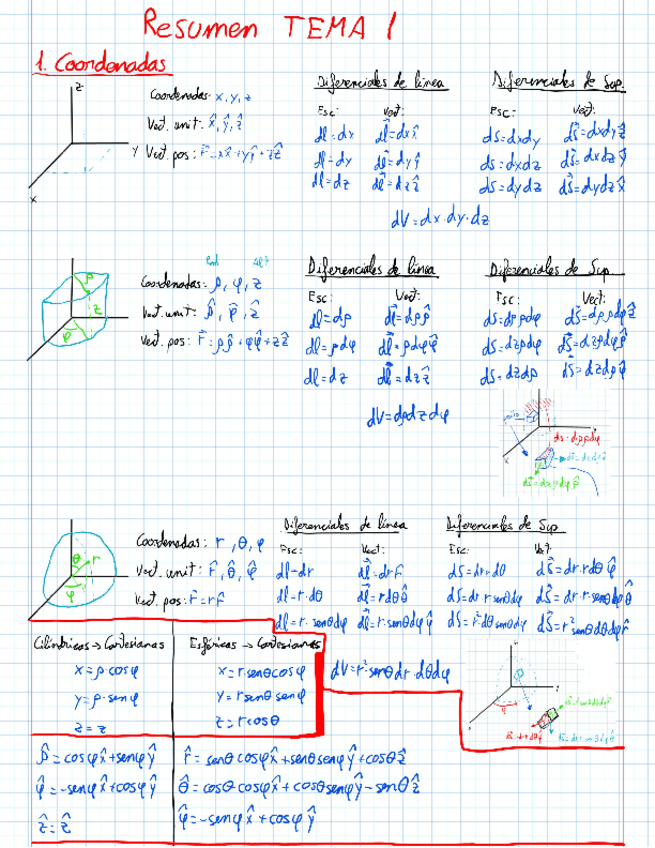 Resumen TEMA 1
1. Coordenadas
z
y
x
Coordenadas: x, y, z
Vect. unit: x̂, ŷ, ẑ
Vect. pos: r⃗ = xx̂ + yŷ + zẑ
Diferenciales de línea
Esc: Vect:
dl = dx dl⃗ = dx x̂
dl = dy dl⃗ = dy ŷ
dl = dz dl⃗ = dz ẑ
Diferenciales de Sup.
Esc: Vect:
dS = dxdy dS⃗ = dxdy ẑ
dS = dxdz dS⃗ = dxdz ŷ
dS = dydz dS⃗ = dydz x̂
dV = dx·dy·dz
ρ
z
φ
Rad Alt
Coordenadas: ρ, φ, z
Vect. unit: ρ̂, φ̂, ẑ
Vect. pos: r⃗ = ρρ̂ + φφ̂ + zẑ
Diferenciales de línea
Esc: Vect:
dl = dρ dl⃗ = dρ ρ̂
dl = ρdφ dl⃗ = ρdφ φ̂
dl = dz dl⃗ = dz ẑ
Diferenciales de Sup.
Esc: Vect:
dS = dρ ρdφ dS⃗ = dρ ρdφ ẑ
dS = dzρdφ dS⃗ = dzρdφ ρ̂
dS = dzdρ dS⃗ = dzdρ φ̂
dV = dρdzdφ
ds = dρ ρdφ
dS⃗ = dzρdφ ρ̂
θ
r
φ
Coordenadas: r, θ, φ
Vect. unit: r̂, θ̂, φ̂
Vect. pos: r⃗ = r r̂
Diferenciales de línea
Esc: Vect:
dl = dr dl⃗ = dr r̂
dl = r·dθ dl⃗ = rdθ θ̂
dl = r·senθdφ dl⃗ = r·senθdφ φ̂
Diferenciales de Sup
Esc: Vect:
dS = dr·rdθ dS⃗ = dr·rdθ φ̂
dS = dr r·senθdφ dS⃗ = dr·r·senθdφ θ̂
dS = r²dθ senθdφ dS⃗ = r²senθdθdφ r̂
dV = r²senθdr·dθdφ
Cilíndricas → Cartesianas
x = ρ·cosφ
y = ρ·senφ
z = z
Esféricas → Cartesianas
x = r·senθcosφ
y = rsenθ senφ
z = r·cosθ
ρ̂ = cosφx̂ + senφŷ
φ̂ = -senφx̂ + cosφŷ
ẑ = ẑ
r̂ = senθ cosφx̂ + senθsenφŷ + cosθẑ
θ̂ = cosθ·cosφx̂ + cosθsenφŷ - senθẑ
φ̂ = -senφx̂ + cosφŷ